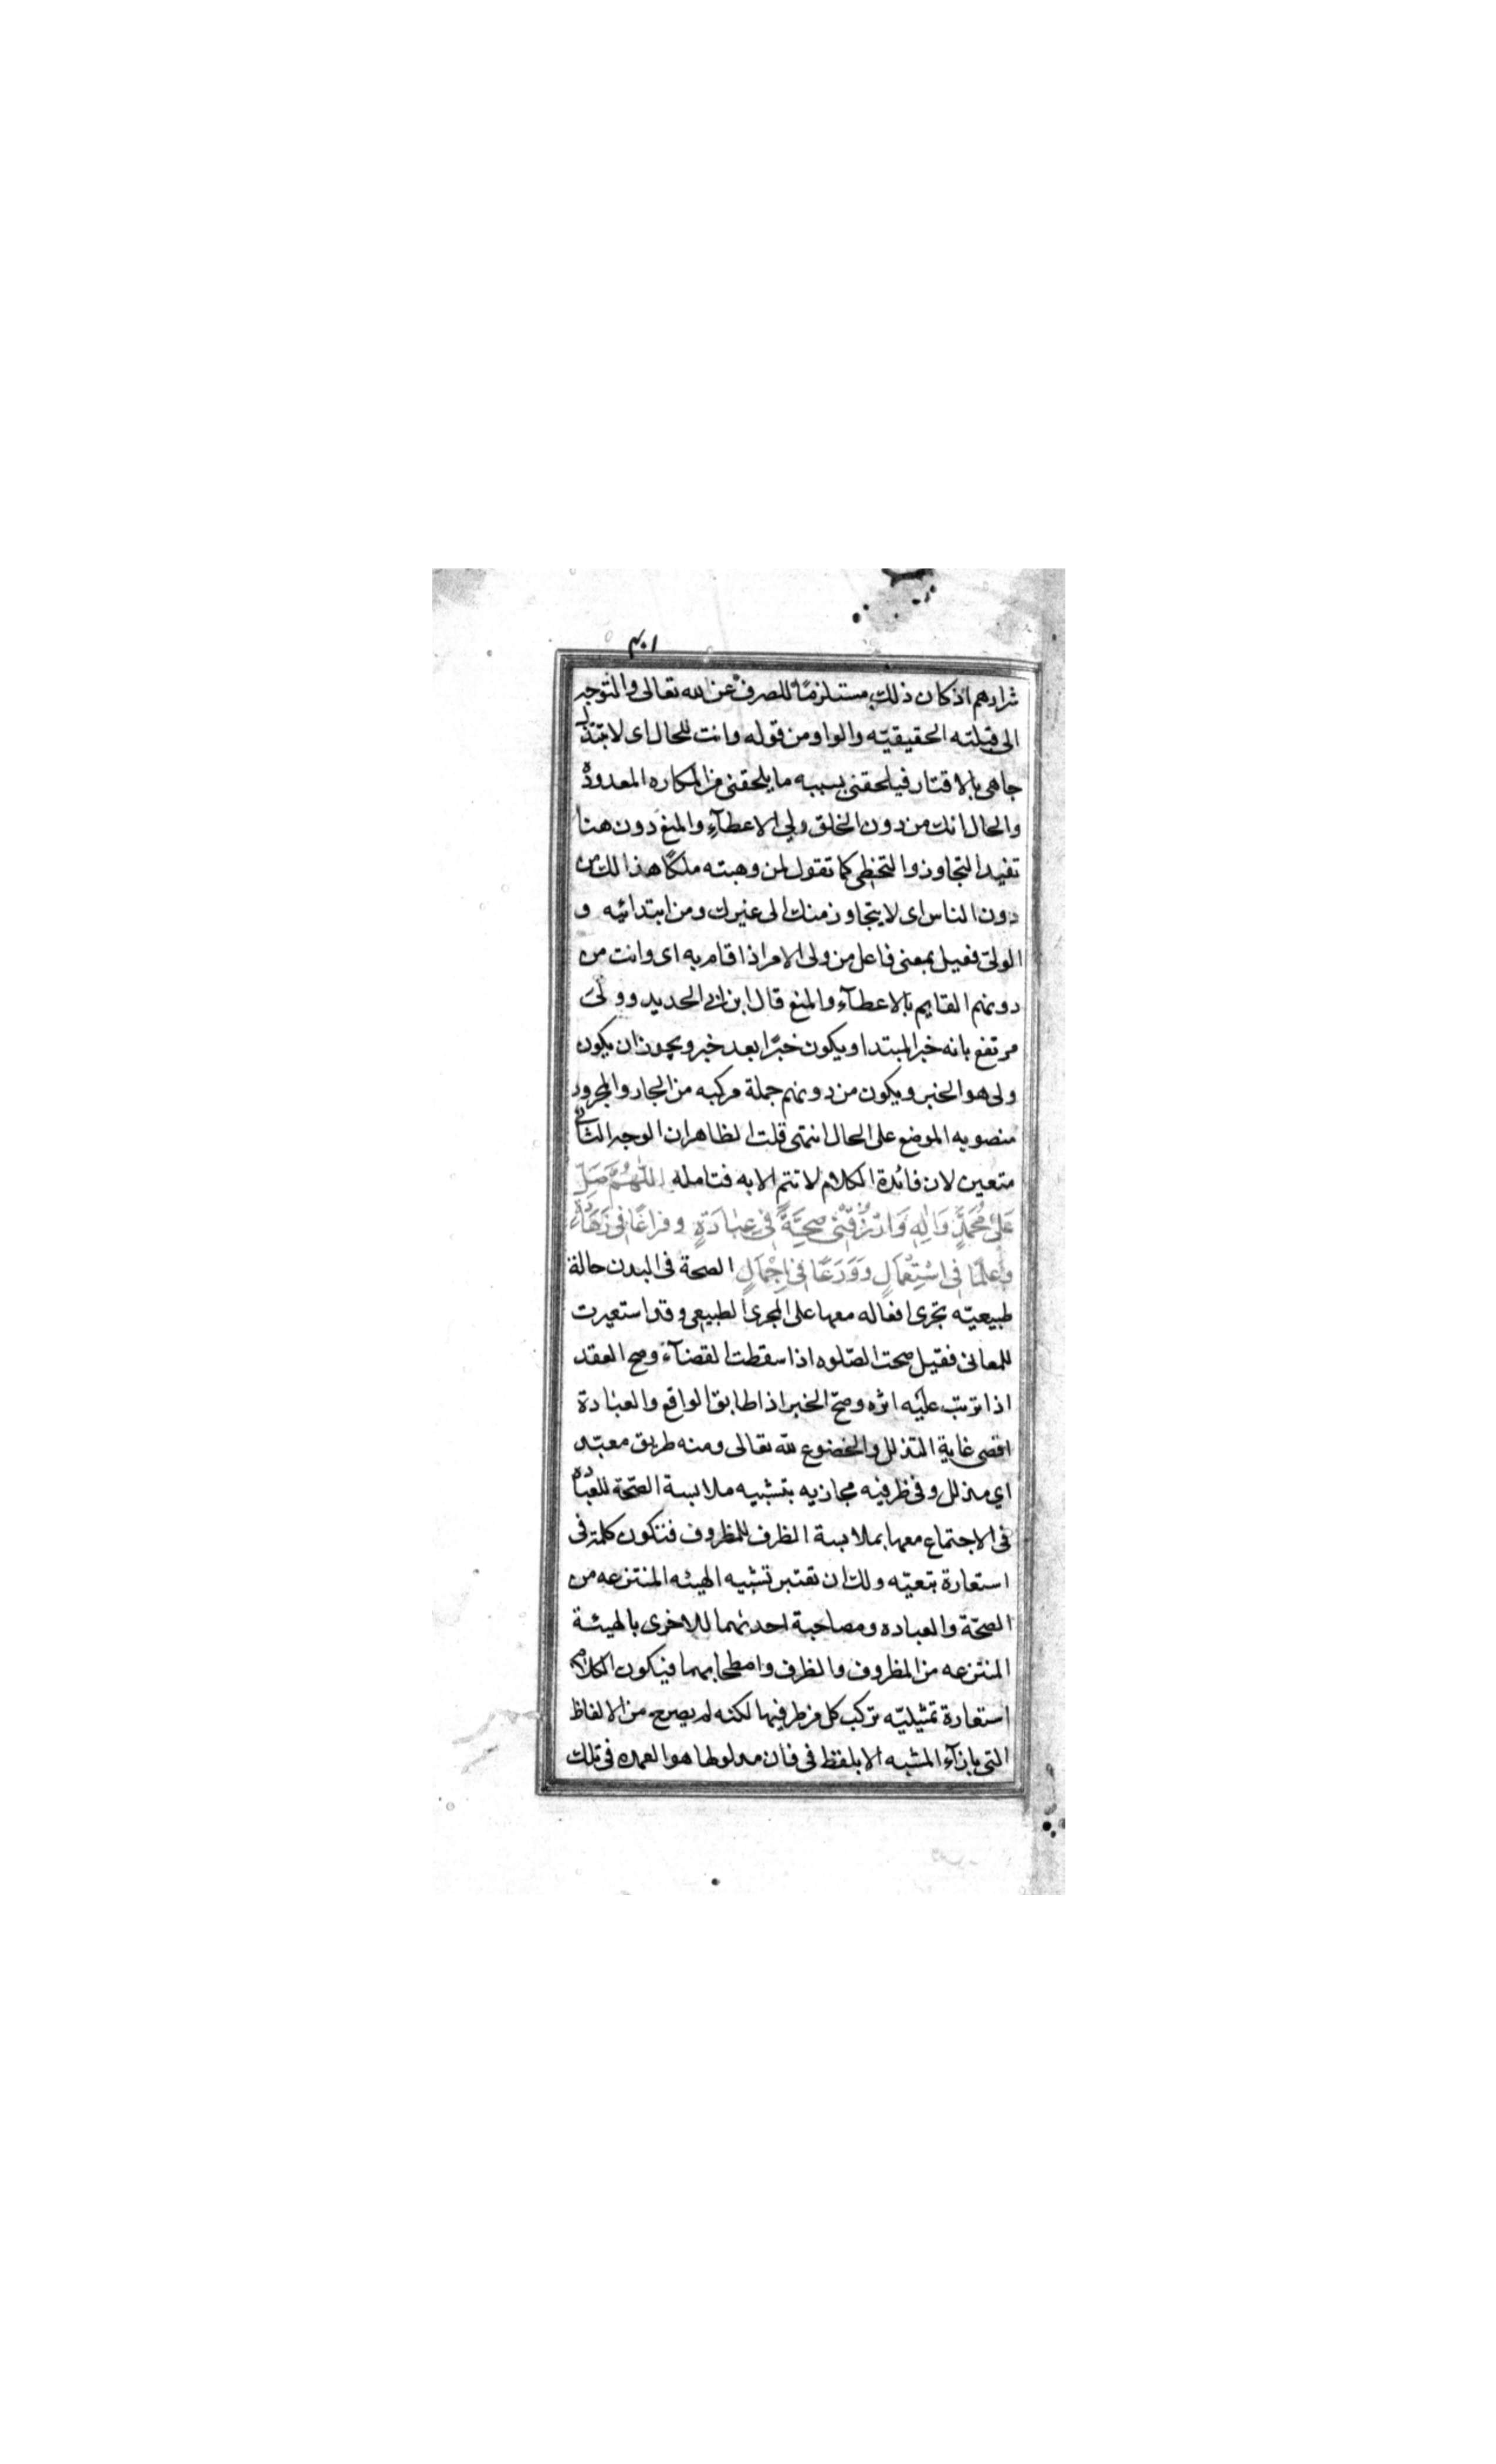 ٤٠١
شرارهم اذ كان ذلك مستلزمًا للصرف عن الله تعالى والتوجه
الى قبلته الحقيقيّه والواو من قوله وانت للحال اى لا تبتذل
جاهى بالاقتار فيلحقنى بسببه ما يلحقنى من المكاره المعدودة
والحال انك من دون الخلق ولى الاعطآء والمنع دون هنا
تفيد التجاوز والتخطى كما تقول لمن وهبته ملكًا هذا لك من
دون الناس اى لا يتجاوز منك الى غيرك ومن ابتدائيه و
الولىّ فعيل بمعنى فاعل من ولى الامر اذا قام به اى وانت من
دونهم القايم بالاعطآء والمنع قال ابن ابى الحديد وولىّ
مرتفع بانه خبر المبتدا ويكون خبرًا بعد خبر ويجوز ان يكون
ولى هو الخبر ويكون من دونهم جملة مركبه من الجار والمجرور
منصوبه الموضع على الحال انتهى قلت الظاهر ان الوجه الثانى
متعين لان فائدة الكلام لا تتم الا به فتامله اللّٰهُمَّ صَلِّ
عَلىٰ مُحَمَّدٍ وَاٰلِهِ وَارْزُقْنى صِحَّةً فى عِبٰادَةٍ وفراغًا فى زَهَادَةٍ
وَعِلْمًا فى اسْتِعْمَالٍ وَوَرَعًا فى اِجْمَالٍ الصحة فى البدن حالة
طبيعيّه تجرى افعاله معها على المجرى الطبيعى وقد استعيرت
للمعانى فقيل صحت الصّلوه اذا سقطت القضآء وصح العقد
اذا ترتب عليه اثره وصحّ الخبر اذا طابق الواقع والعبادة
اقصى غاية التذلل والخضوع لله تعالى ومنه طريق معبّد
اى مذلل وفى ظرفيه مجازيه بتشبيه ملابسة الصّحّة للعبادة
فى الاجتماع معها بملابسة الظرف للمظروف فتكون كلمة فى
استعارة تبعيّه ولك ان تعتبر تشبيه الهيئه المنتزعه من
الصحّة والعباده ومصاحبة احدىهما للاخرى بالهيئة
المنتزعه من المظروف والظرف واصطحابهما فيكون الكلام
استعارة تمثيليّه تركب كل من طرفيها لكنه لم يصرح من الالفاظ
التى بازآء المشبه الا بلفظ فى فان مدلولها هو العمده فى تلك